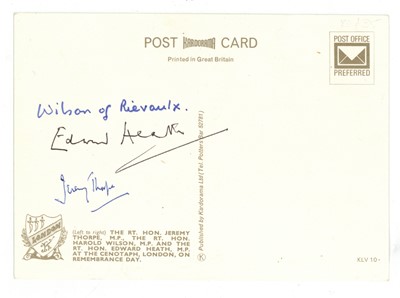 POST KARDORAMA CARD
Printed in Great Britain
POST OFFICE
PREFERRED
Wilson of Rievaulx.
Edward Heath
Jeremy Thorpe
Published by Kardorama Ltd (Tel. Potters Bar 52781)
LONDON
(Left to right) THE RT. HON. JEREMY
THORPE, M.P., THE RT. HON.
HAROLD WILSON, M.P. AND THE
RT. HON. EDWARD HEATH, M.P.
AT THE CENOTAPH, LONDON, ON
REMEMBRANCE DAY.
K
KLV 10